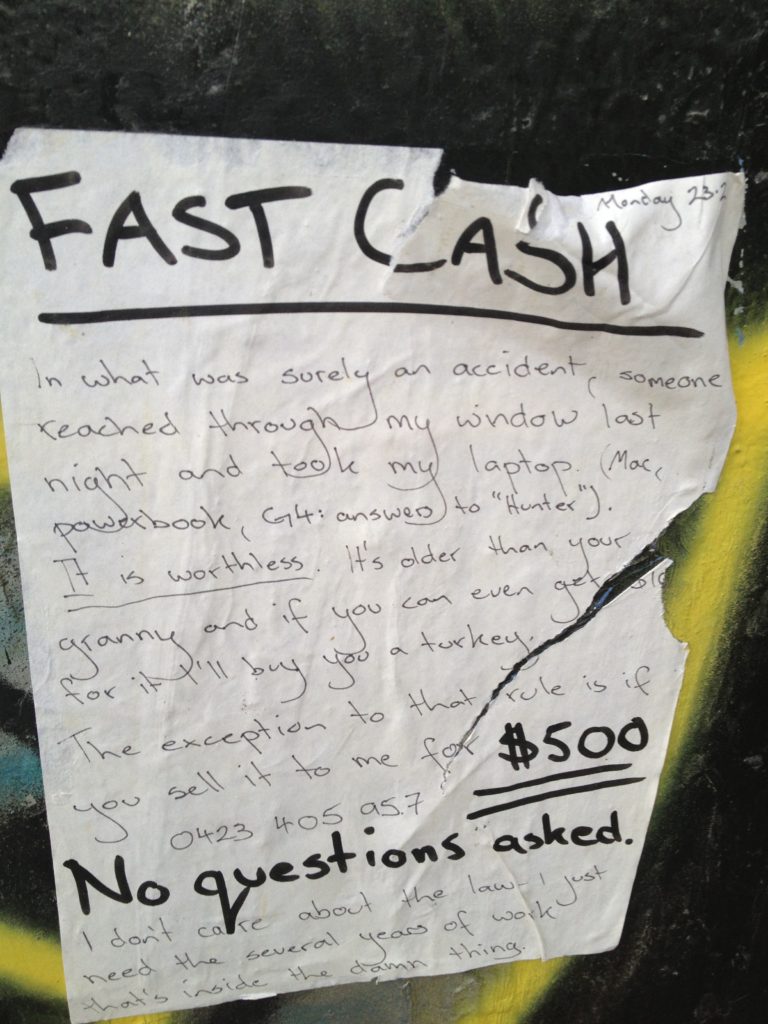 Monday 23.2
FAST CASH
In what was surely an accident, someone
reached through my window last
night and took my laptop. (Mac,
powerbook, G4: answers to "Hunter").
It is worthless. It's older than your
granny and if you can even get
for it I'll buy you a turkey.
The exception to that rule is if
you sell it to me for $500
0423 405 957
No questions asked.
I don't care about the law - I just
need the several years of work
that's inside the damn thing.